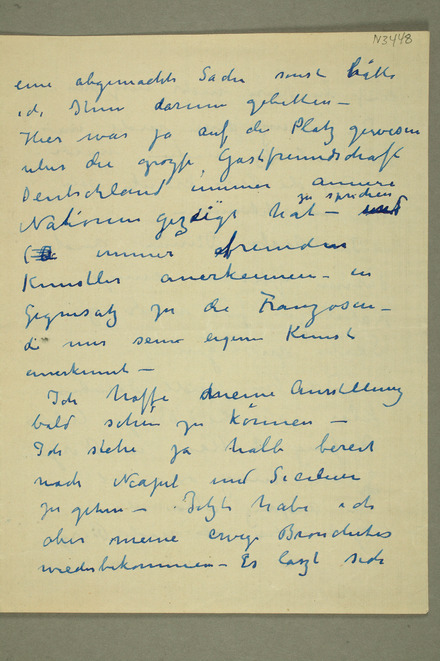 N3448
eine abgemachte Sache sonst hätte
ich Ihnen darum gebetten –
Hier war ja auf der Platz gewesen
uber die grosse Gastfreundschaft
Deutschland immer annere
zu sprechen
Nationen gezeigt hat – und
( immer fremden
Kunstler anerkennen – in
Gegensatz zu die Franzosen –
die nur seine eigene Kunst
anerkennt –
Ich hoffe meine Ausstellung
bald sehen zu können –
Ich stehe ja halb bereit
nach Neapel und Sicilien
zu gehen – Jetzt habe ich
aber meine ewige Bronchites
wiederbekommen – Es lasst sich